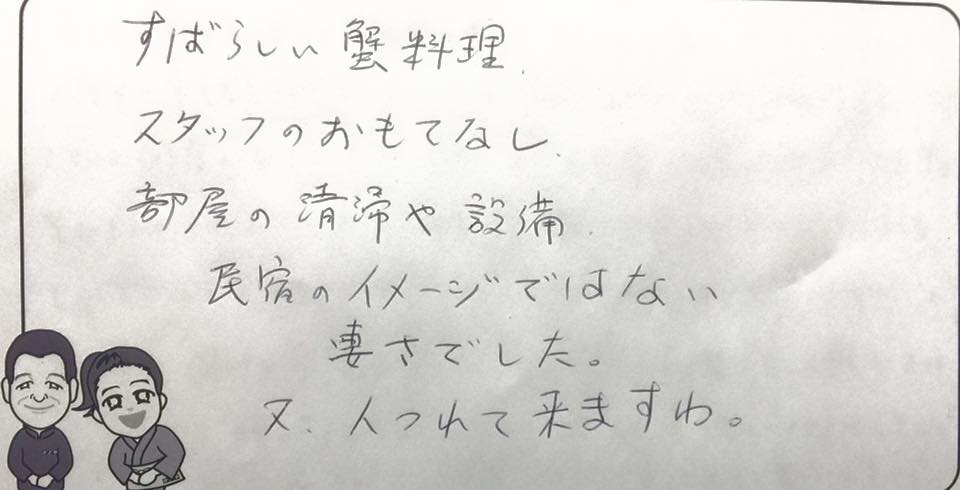 すばらしい蟹料理.
スタッフのおもてなし.
部屋の清掃や設備.
民宿のイメージではない
凄さでした。
又、人つれて来ますわ。